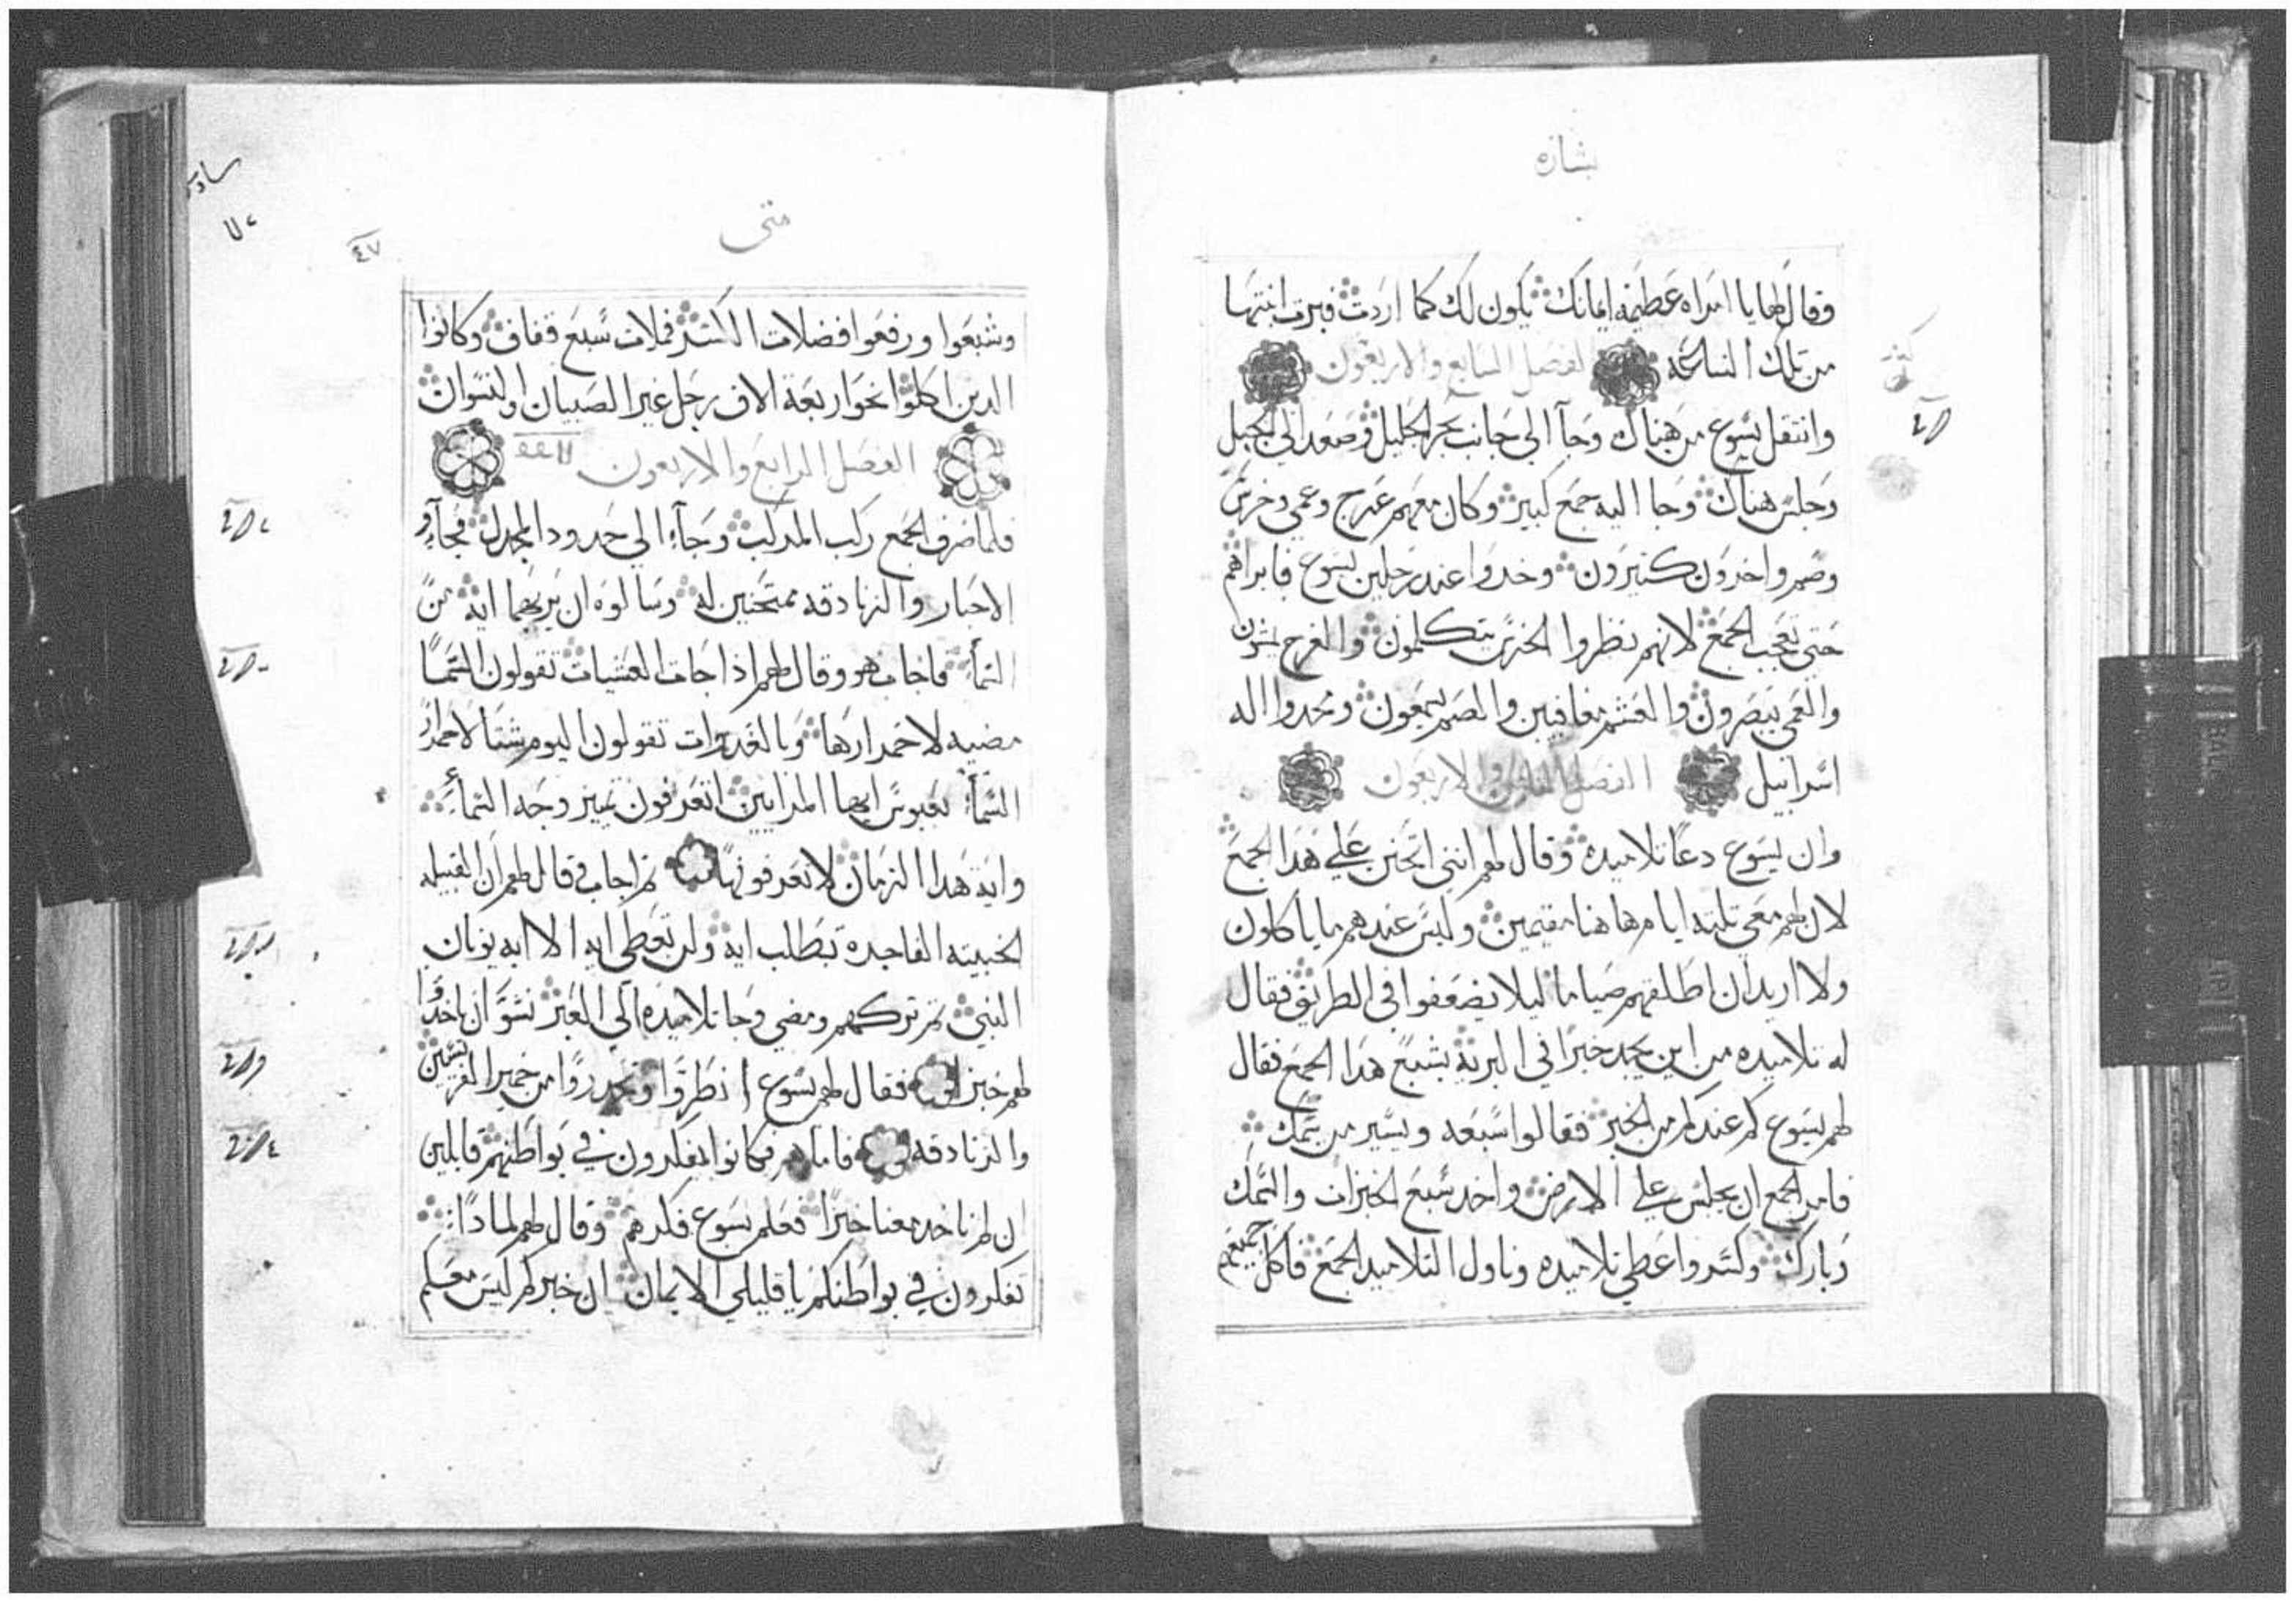 بشاره
وقال لها يا امراه عظيمه ايمانك يكون لك كما اردت فبرت ابنتها
من تلك الساعه الفصل السابع والاربعون
وانتقل يسوع من هناك وجآ الي جانب بحر الجليل وصعد الي الجبل
وجلس هناك وجا اليه جمع كبير وكان معهم عرج وعمي وخرس
وصم واخرون كثيرون وخروا عند رجلين يسوع فابراهم
حتي تعجب الجمع لانهم نظروا الخرس يتكلمون والعرج يمشون
والعمي يبصرون والعشم معافيين والصم يسمعون ومجدوا اله
اسراييل الفصل والاربعون
وان يسوع دعا تلاميده وقال لهم انني اتحنن علي هدا الجمع
لان لهم معي تلته ايام هاهنا مقيمين وليس عندهم ما ياكلون
ولا اريد ان اطلقهم صياما ليلا يضعفوا في الطريق فقال
له تلاميده من اين يجد خبزا في البرية يشبع هدا الجمع فقال
لهم يسوع كم عندكم من الخبز فقالوا سبعه ويسير من سمك
فامر الجمع ان يجلس علي الارض واخد سبع الخبزات والسمك
وبارك وكسر واعطي تلاميده وناول التلاميد الجمع فاكل جميعهم
متى
٤٧
وشبعوا ورفعوا فضلات الكسر فملات سبع قفاف وكانوا
الدين اكلوا نحو اربعة الاف رجل غير الصبيان والنسوان
الفصل الرابع والاربعون
فلما صرف الجمع ركب المركب وجآء الي حدود المجدل فجآو
الاحبار والزنادقه ممتحنين له وسالوه ان يريهما ايه من
السمآء فاجاب هو وقال لهم اذا جات العشيات تقولون السما
مضيه لاحمرارها وبالغدوات تقولون اليوم شتا لاحمرار
السمآء بعبوس ايها المرايين اتعرفون تمييز وجه السمآء
واية هدا الزمان لا تعرفونها ثم اجاب قال لهم ان القبيله
الخبيثه الفاجرة تطلب ايه ولن تعطي ايه الا ايه يونان
النبي ثم تركهم ومضي وجا تلاميده الي العبر نسو ان ياخدوا
لهم خبزا فقال لهم يسوع انظروا وتحدروا من خمير الفريسين
والزنادقه فاما هم فكانوا يفكرون في بواطنهم قايلين
ان لم ناخد معنا خبزا فعلم يسوع فكرهم وقال لهم لمادا
تفكرون في بواطنكم يا قليلي الايمان ان خبزكم ليس معكم